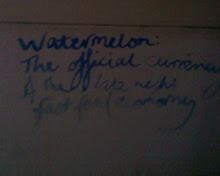 Watermelon:
The official currency
of the
fast food economy